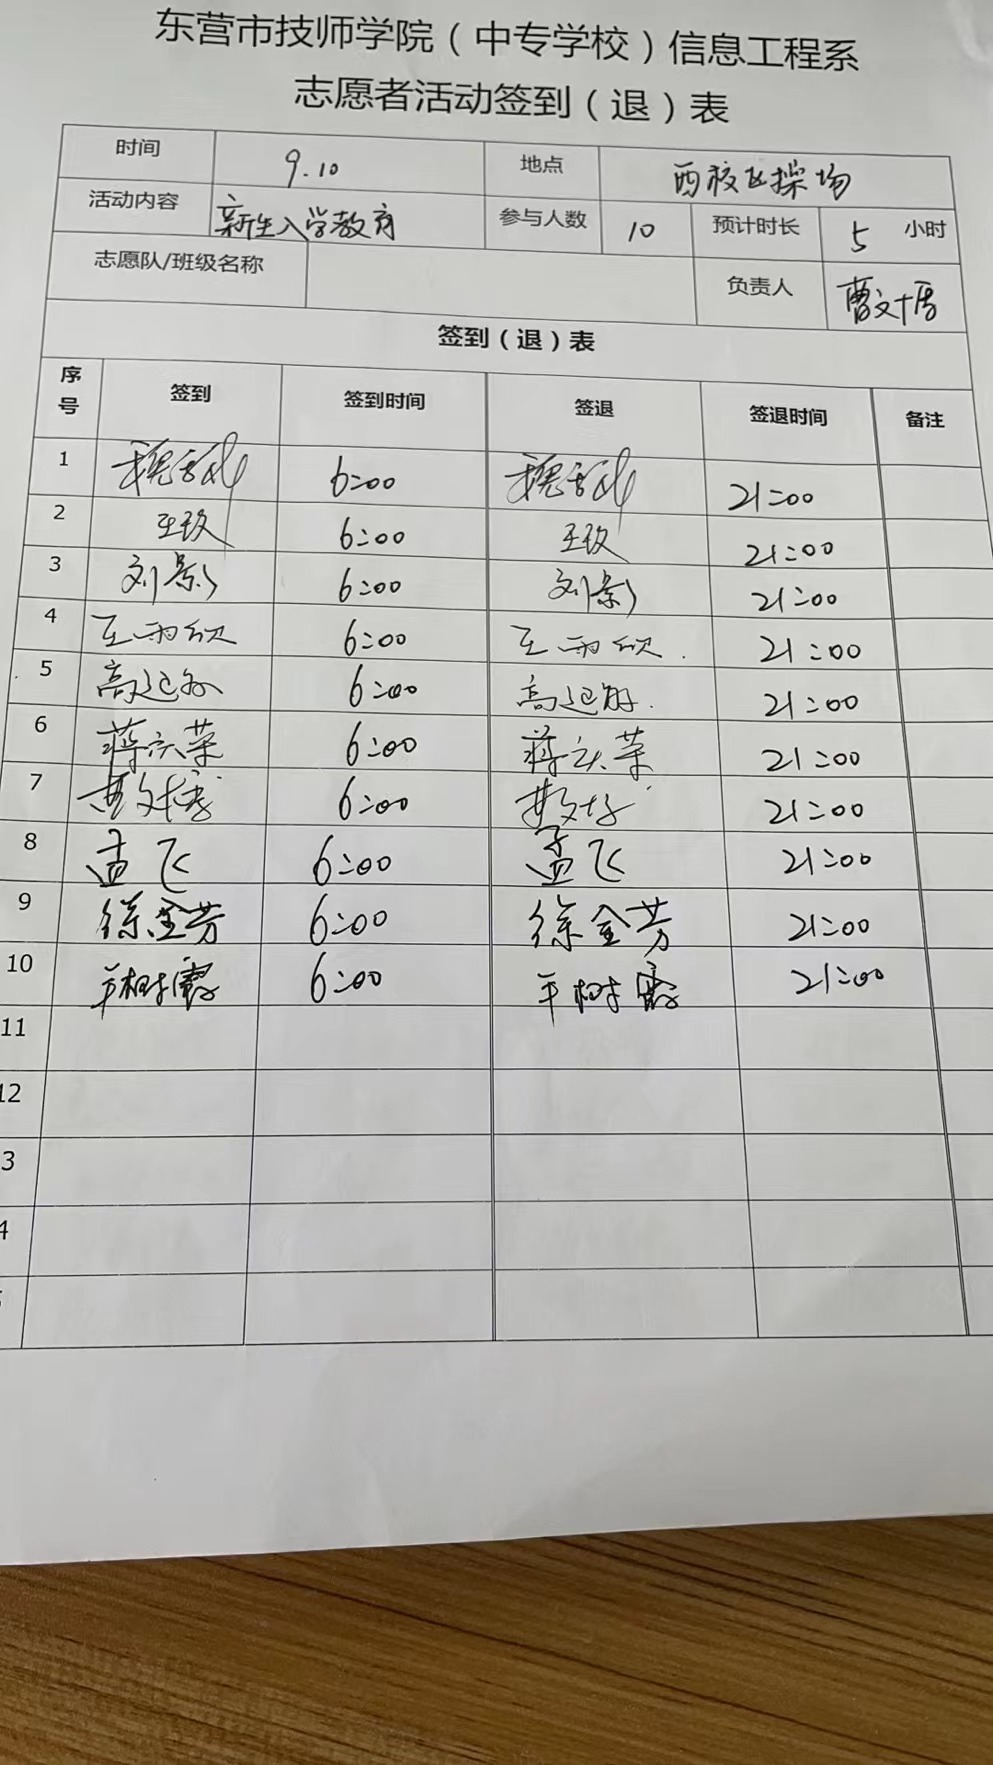 东营市技师学院（中专学校）信息工程系
志愿者活动签到（退）表
时间 9.10 地点 西校区操场
活动内容 新生入学教育 参与人数 10 预计时长 5 小时
志愿队/班级名称 负责人 曹文
签到（退）表
序号 签到 签到时间 签退 签退时间 备注
1 魏 6:00 魏 21:00
2 王玫 6:00 王玫 21:00
3 刘影 6:00 刘影 21:00
4 王雨欣 6:00 王雨欣 21:00
5 高 6:00 高 21:00
6 蒋庆荣 6:00 蒋庆荣 21:00
7 6:00 21:00
8 孟飞 6:00 孟飞 21:00
9 徐金芳 6:00 徐金芳 21:00
10 平树霞 6:00 平树霞 21:00
11
12
3
4